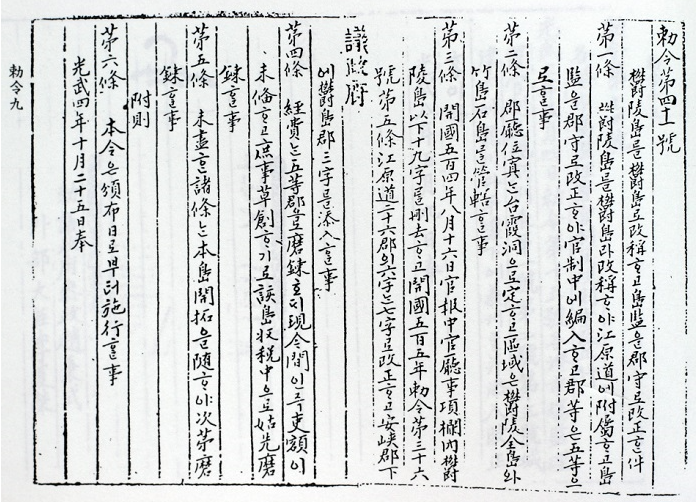 勅令第四十一號
鬱陵島를鬱島로改稱ᄒᆞ고島監을郡守로改正ᄒᆞᆫ件
第一條 鬱陵島를鬱島라改稱ᄒᆞ야江原道에附屬ᄒᆞ고島
監을郡守로改正ᄒᆞ야官制中에編入ᄒᆞ고郡等은五等으
로ᄒᆞᆯ事
第二條 郡廳位寘는台霞洞으로定ᄒᆞ고區域은鬱陵全島와
竹島石島를管轄ᄒᆞᆯ事
第三條 開國五百四年八月十六日官報中官廳事項欄內鬱
陵島以下十九字를刪去ᄒᆞ고開國五百五年勅令第三十六
號第五條江原道二十六郡의六字는七字로改正ᄒᆞ고安峽郡下
議政府
에鬱島郡三字를添入ᄒᆞᆯ事
第四條 經費는五等郡으로磨鍊호ᄃᆡ現今間인즉吏額이
未備ᄒᆞ고庶事草創ᄒᆞ기로該島收稅中으로姑先磨
鍊ᄒᆞᆯ事
第五條 未盡ᄒᆞᆫ諸條는本島開拓을隨ᄒᆞ야次第磨
鍊ᄒᆞᆯ事
附則
第六條 本令은頒布日로부터施行ᄒᆞᆯ事
光武四年十月二十五日奉
勅令九